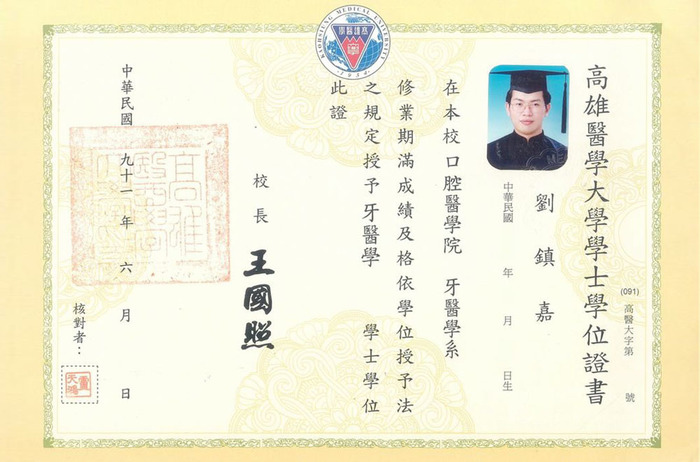 KAOHSIUNG MEDICAL UNIVERSITY
高雄醫學大學學士學位證書
(091) 高醫大字第 號
劉鎮嘉
中華民國 年 月 日生
在本校口腔醫學院 牙醫學系
修業期滿成績及格依學位授予法
之規定授予牙醫學 學士學位
此證
校長 王國照
中華民國 九十一 年 六 月 日
核對者：